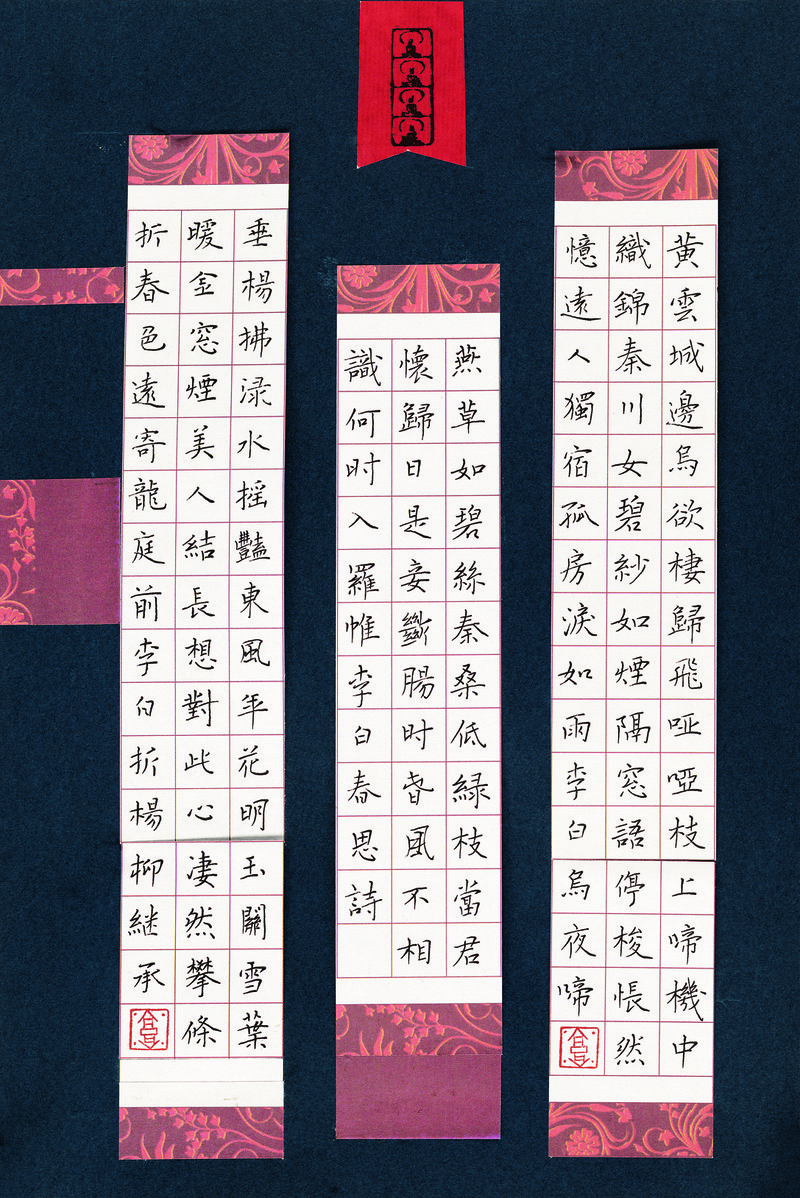 黃雲城邊烏欲棲歸飛啞啞枝上啼機中
織錦秦川女碧紗如煙隔窓語停梭悵然
憶遠人獨宿孤房淚如雨李白烏夜啼
燕草如碧絲秦桑低緑枝當君
懷歸日是妾斷腸时春風不相
識何时入羅帷李白春思詩
垂楊拂渌水摇豔東風年花明玉關雪葉
暖金窓煙美人結長想對此心凄然攀條
折春色遠寄龍庭前李白折楊柳継承